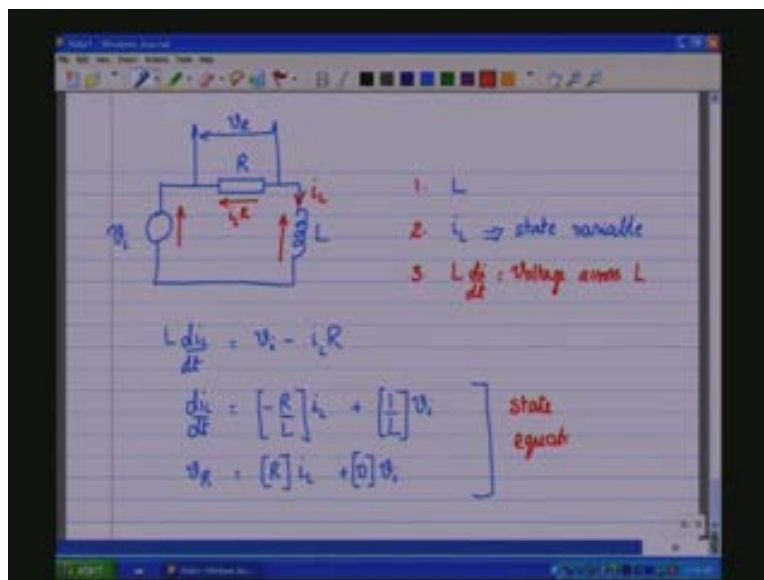 Note1 - Windows Journal
File Edit View Insert Actions Tools Help
B I
v_R
R
i_L
i_L R
v_i
L
1. L
2. i_L ⇒ state variable
3. L di/dt : Voltage across L
L di_L/dt = v_i - i_L R
di_L/dt = [-R/L] i_L + [1/L] v_i
v_R = [R] i_L + [0] v_i
state
equati
start